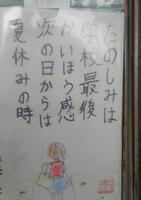 たのしみは
学校最後
かいほう感
次の日からは
夏休みの時